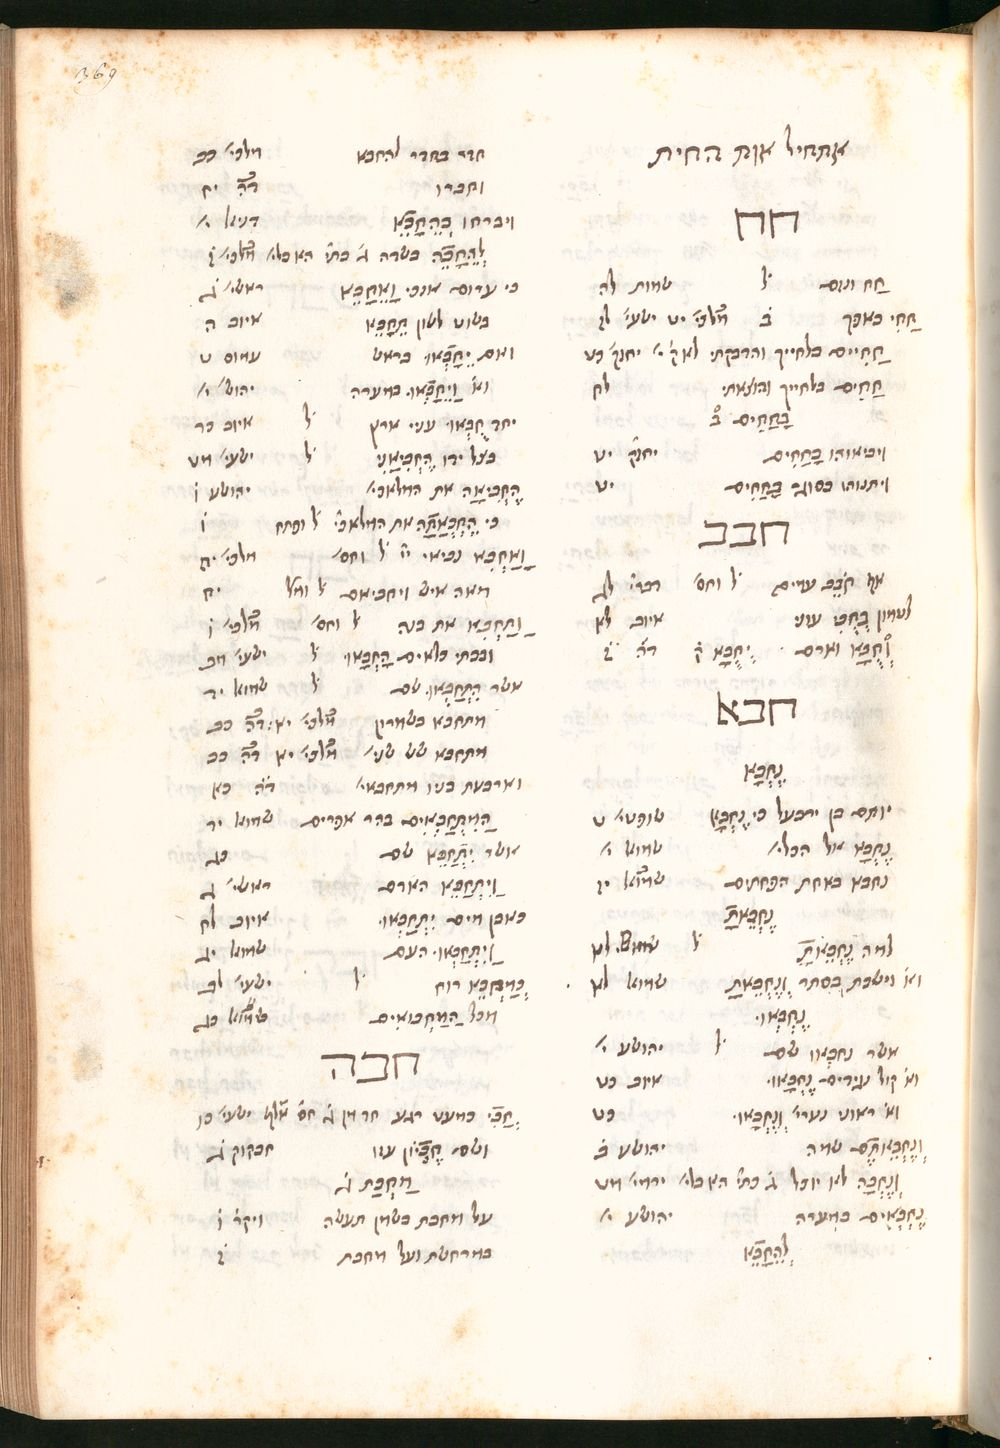 369
אתחיל אות החית
חח
חח ונזם ל שמות לה
חחי באפך ב מלכי׳ יט ישעי׳ לז
חחיים בלחייך והדבקתי יחזק׳ כט
חחים בלחייך והוצאתי לח
בחחים ב
ויביאוהו בחחים יחזק׳ יט
ויתנוהו בסוגר בחחים יט
חבב
אף חבב עמים ל וחס׳ דברי׳ לג
לטמון בחבי עוני איוב לא
וחבא וארם יחבא
חבא
נֶחְבָּא
יותם בן ירבעל כי נחבא שופטי׳ ט
נחבא אל הכלי׳ שמוא י׳
נחבא באחת הפחתים שמוא יז
נחבאת
למה נחבאת ל
וא׳ וישבת בסתר ונחבאת שמוא
נחבאו
אשר נחבאו שם ל יהושע י׳
וא׳ קול נגידים נחבאו איוב כט
וא׳ ראוני נערי׳ ונחבאו כט
ונחבאתם שמה יהושע ב
ונחבה לא יוכל ג׳ כתי׳ ה׳ ירמי׳ מט
נחבאים במערה יהושע י׳
להחבא
חדר בחדר להחבא מלכי׳ כב
וחברו דה יח
ויברחו בהחבא דניאל י׳
להחבה בשדה ג׳ כתי׳ ה׳ מלכי׳ ז
כי ערום אנכי ואחבא ראשי׳ ג
בשוט לשון תחבא איוב ה
ואם יחבאו בראש עמוס ט
וא׳ ויחבאו במערה יהוש׳ י׳
יחד חבאו עניי ארץ ל איוב כד
בצל ידו החביאני ל ישעי׳ מט
החביאה את המלאכי׳ יהושע ו
כי החבאתה את המלאכי׳ ל ו
ואחבא נביאי ל וחס׳ מלכי׳ יח
מאה איש ויחביאם ל ומל׳ יח
ותחבא את בנה ל וחס׳ מלכי׳ ו
ובבתי כלאים החבאו ל ישעי׳ מב
אשר התחבאו שם ל שמוא יד
מתחבא בשמרון דה כב
מתחבא שש שני׳ מלכי׳ יא דה כב
וארבעת בניו מתחבאי׳ דה כא
המתחבאים בהר אפרים שמוא יד
אשר יתחבא שם כג
ויתחבא האדם ראשי׳ ג
כאבן מים יתחבאו איוב לח
ויתחבאו העם שמוא יג
כמחבא רוח ל ישעי׳ לב
מכל המחבואים שמוא כג
חבה
חבי כמעט רגע ישעי׳ כו
ושם חביון עזו חבקוק ג
מחבת ג
על מחבת בשמן תעשה ויקר׳ ו
במרחשת ועל מחבת ז